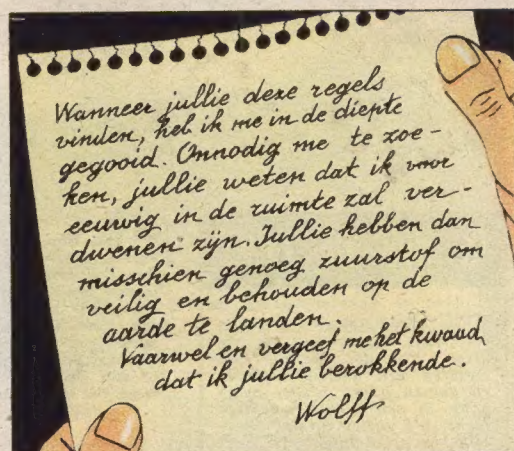 Wanneer jullie deze regels
vinden, heb ik me in de diepte
gegooid. Onnodig me te zoe-
ken, jullie weten dat ik voor
eeuwig in de ruimte zal ver-
dwenen zijn. Jullie hebben dan
misschien genoeg zuurstof om
veilig en behouden op de
aarde te landen.
Vaarwel en vergeef me het kwaad,
dat ik jullie berokkende.
Wolff